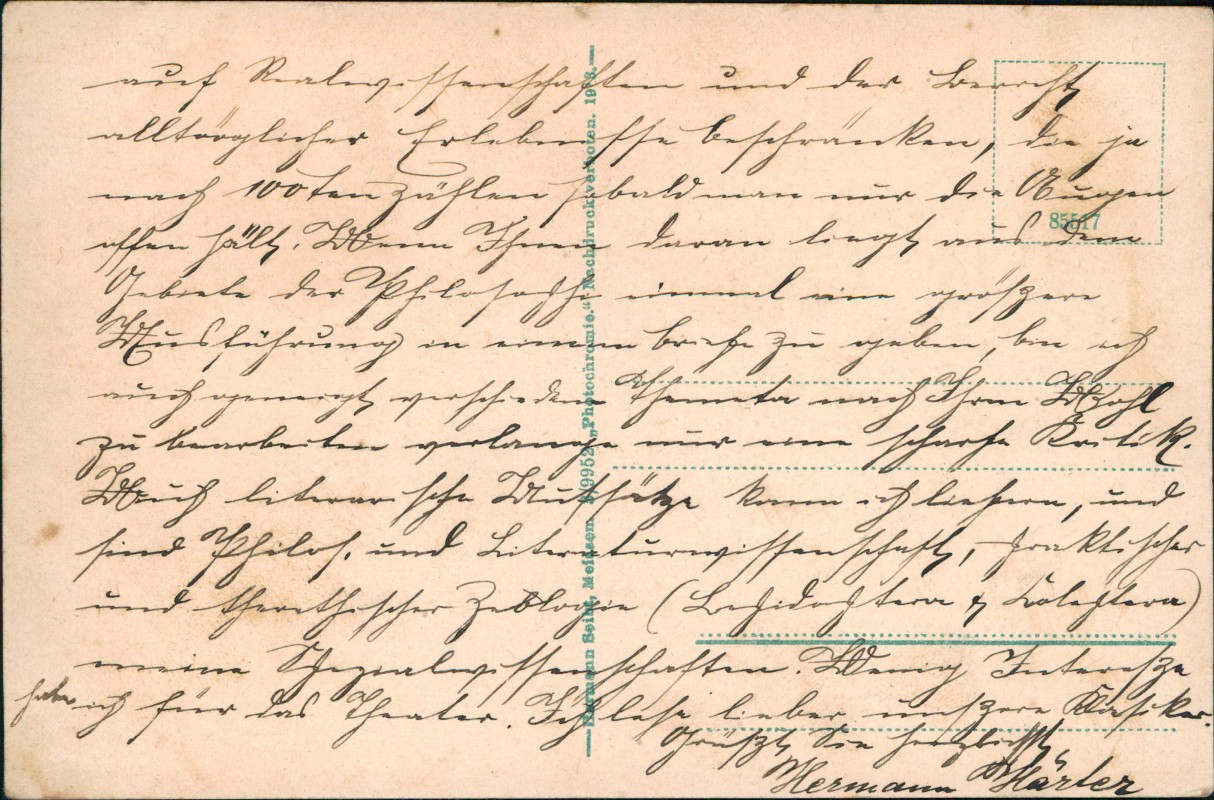 auf Realwissenschaften und der Bericht
alltäglicher Erlebnisse beschränken, die ja
nach 100ten zählen sobald man nur die Augen
offen hält. Wenn Ihnen daran liegt aus dem
Gebiete der Philosophie einmal eine größere
Ausführung in einem briefe zu geben, bin ich
auch geneigt verschiedene Themata nach Ihrer Wahl
zu bearbeiten verlange nur eine scharfe Kritik.
Auch literarische Aufsätze kann ich liefern, und
sind Philos. und Literaturwissenschaft, praktischer
und therethischer Zoologie (Lepidoptera & Coleoptera)
meine Spezialwissenschaften. Wenig Interesse
habe ich für das Theater. Ich lese lieber unsere Klasiker.
Grüßt Sie herzlichst
Hermann Härter
Hermann Seibt, Meissen. 99952 „Photochromie.“ Nachdruck verboten. 1913.
85517